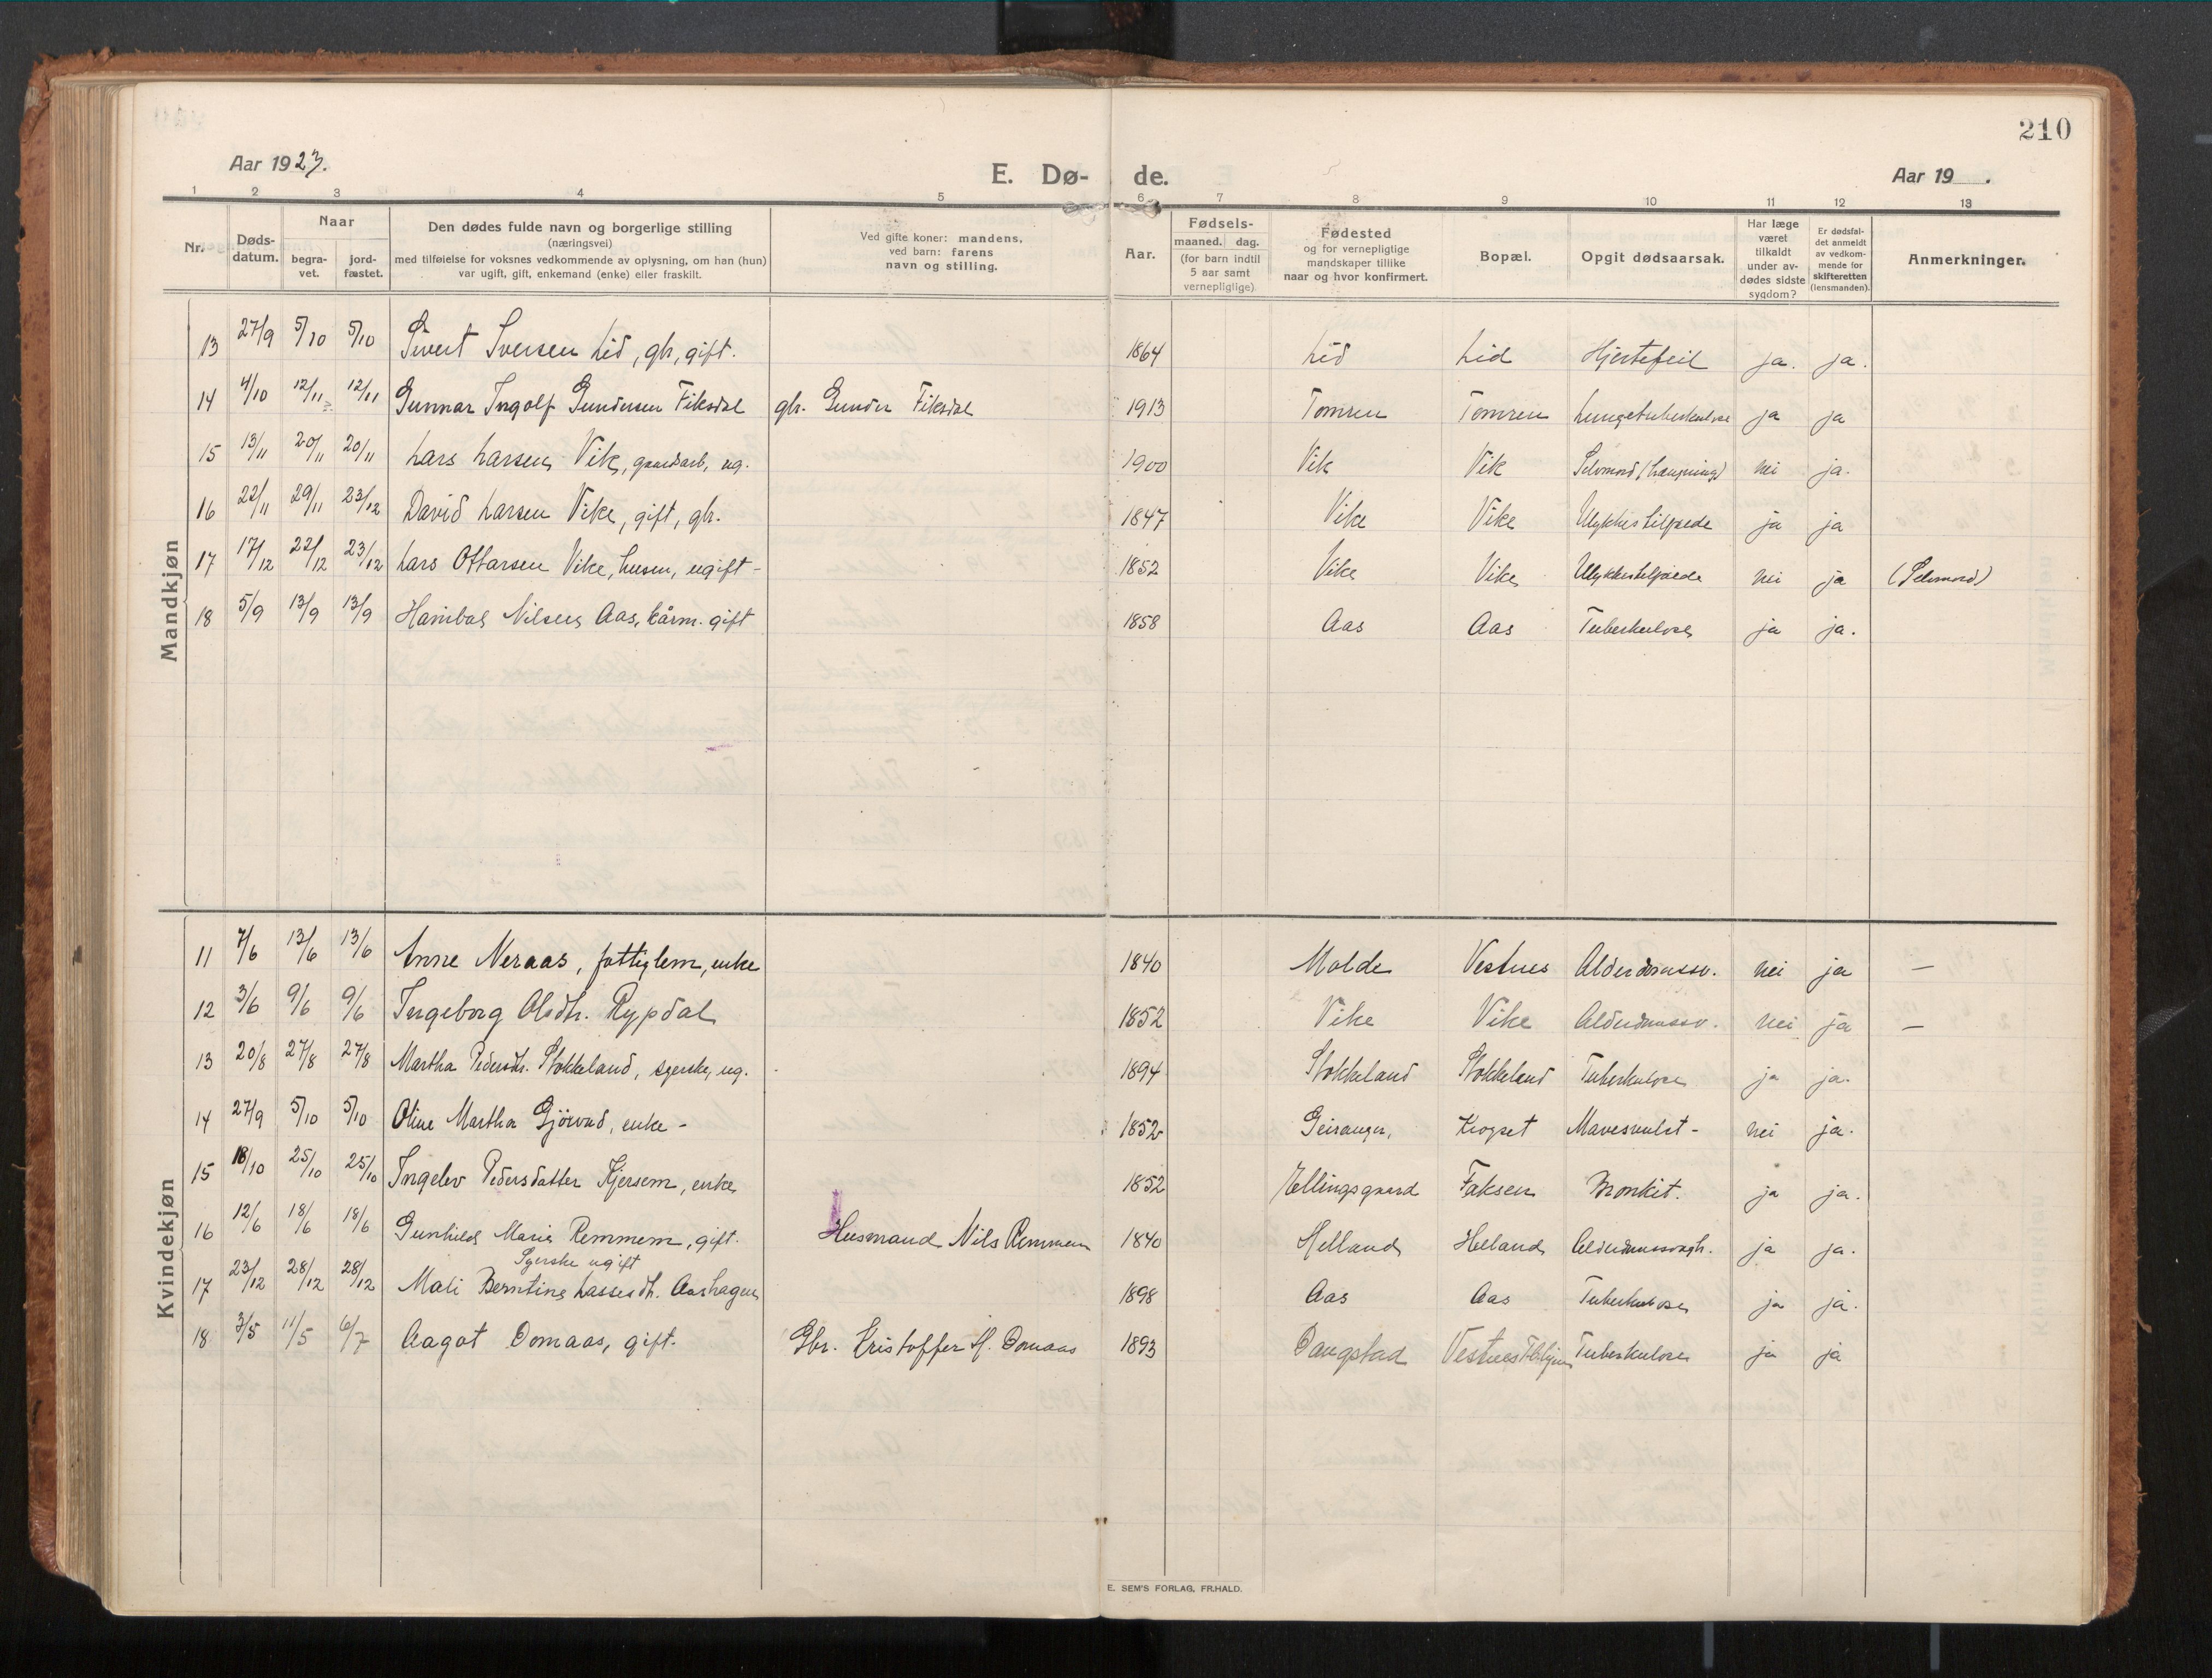 210
Aar 1923.
E. Dø- de.
Aar 19 .
1 2 3 4 5 6 7 8 9 10 11 12 13
Nr.
Døds-
datum.
Naar
begra-
vet.
jord-
fæstet.
Den dødes fulde navn og borgerlige stilling
(næringsvei)
med tilføielse for voksnes vedkommende av oplysning, om han (hun)
var ugift, gift, enkemand (enke) eller fraskilt.
Ved gifte koner: mandens,
ved barn: farens
navn og stilling.
Aar.
Fødsels-
maaned. dag.
(for barn indtil
5 aar samt
vernepligtige)
Fødested
og for vernepligtige
mandskaper tillike
naar og hvor konfirmert.
Bopæl.
Opgit dødsaarsak.
Har læge
været
tilkaldt
under av-
dødes sidste
sygdom?
Er dødsfal-
det anmeldt
av vedkom-
mende for
skifteretten
(lensmanden).
Anmerkninger.
Mandkjøn
13 27/9 5/10 5/10 Sivert Iversen Lid, gbr, gift. 1864 Lid Lid Hjertefeil ja. ja.
14 4/10 12/11 12/11 Gunnar Ingolf Gundersen Fiksdal gbr. Gunder Fiksdal 1913 Tomren Tomren Lungetuberkulose ja ja
15 13/11 20/11 20/11 Lars Larsen Vik, gaardarb, ug. 1900 Vik Vik Selvmord (hængning) nei ja.
16 22/11 29/11 23/12 David Larsen Vike, gift, gbr. 1847 Vike Vike Ulykkestilfælde ja ja
17 17/12 22/12 23/12 Lars Ottarsen Vike, husm, ugift - 1852 Vike Vike Ulykkestilfælde nei ja (Selvmord)
18 5/9 13/9 13/9 Hanibal Nilsen Aas, kårm. gift 1858 Aas Aas Tuberkulose ja ja.
Kvindekjøn
11 7/6 13/6 13/6 Anne Neraas, fattiglem, enke 1840 Molde Vestnes Alderdomssv. nei ja —
12 3/6 9/6 9/6 Ingeborg Olsdtr. Rypdal 1852 Vike Vike Alderdomssv. nei ja —
13 20/8 27/8 27/8 Martha Pedersdtr. Stokkeland, syerske, ug. 1894 Stokkeland Stokkeland Tuberkulose ja ja.
14 27/9 5/10 5/10 Oline Martha Gjörvad, enke - 1852 Geiranger, Krogset Mavesvulst - nei ja.
15 18/10 25/10 25/10 Ingelev Pedersdatter Kjersem, enke 1852 Ellingsgaard Faksen Bronkit. ja ja.
16 12/6 18/6 18/6 Gunhild Marie Remmem, gift. Husmand Nils Remmem 1840 Helland Helland Alderdomssvagh. ja ja.
Syerske ugift
17 23/12 28/12 28/12 Mali Berntine Lassesdtr. Aashagen 1898 Aas Aas Tuberkulose ja ja.
18 3/5 11/5 6/7 Aagot Domaas, gift. Gbr. Kristoffer H. Domaas 1893 Daugstad Vestnes Tuberkulose ja ja
E. SEM'S FORLAG, FR.HALD.